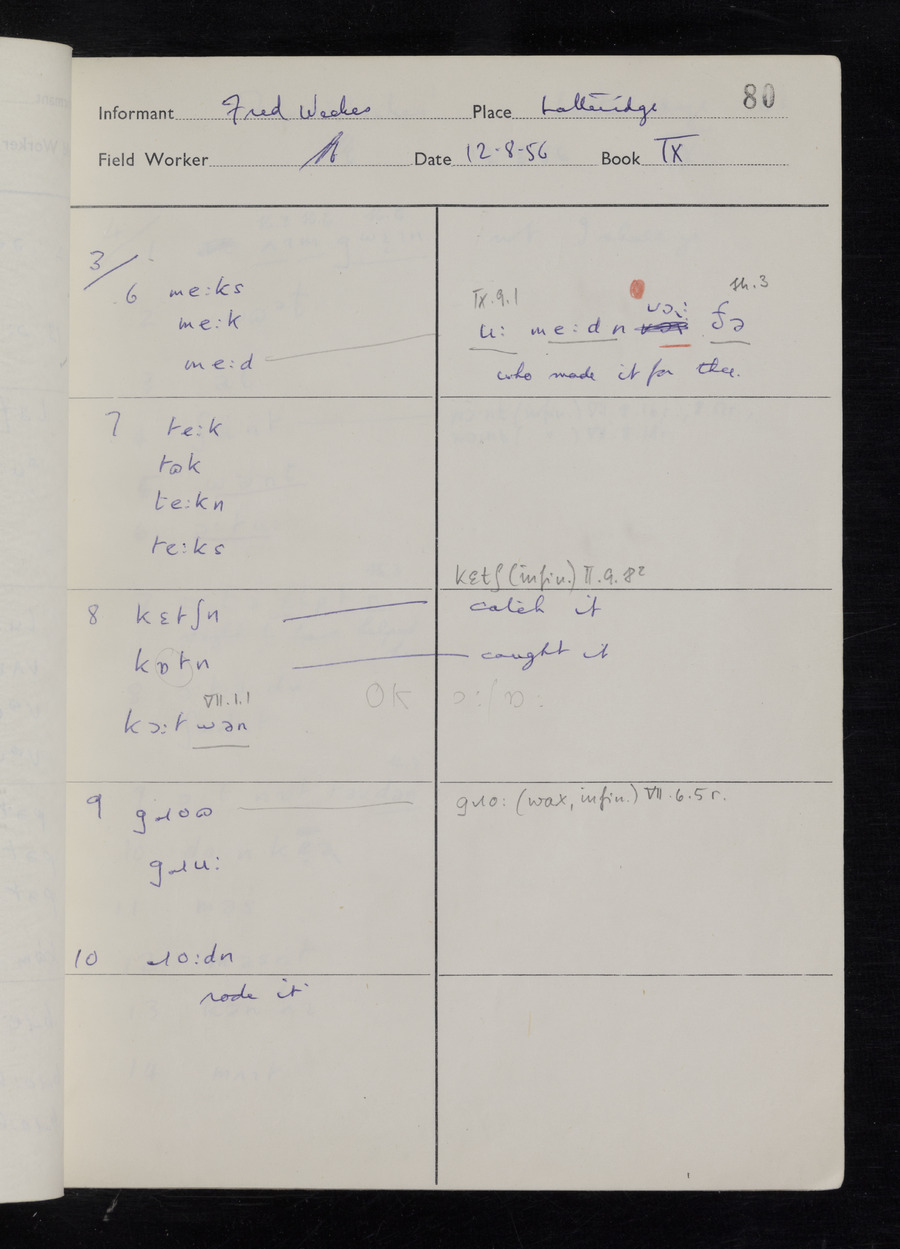 80
Informant Fred Weekes Place Latteridge
Field Worker A Date 12-8-56 Book IX
3/
6 me:ks
me:k
me:d
IX.9.1
sh.3
u: me:dn və˞: ðə
who made it for thee.
7 te:k
tɷk
te:kn
te:ks
kɛtʃ (infin.) II.9.8²
8 kɛtʃn catch it
kɒtn caught it
VII.1.1
kɔ:t wən
OK ɔ:/ɒ:
9 gɹoɷ gɹo: (wax, infin.) VII.6.5 r.
gɹu:
10 ɹo:dn
rode it